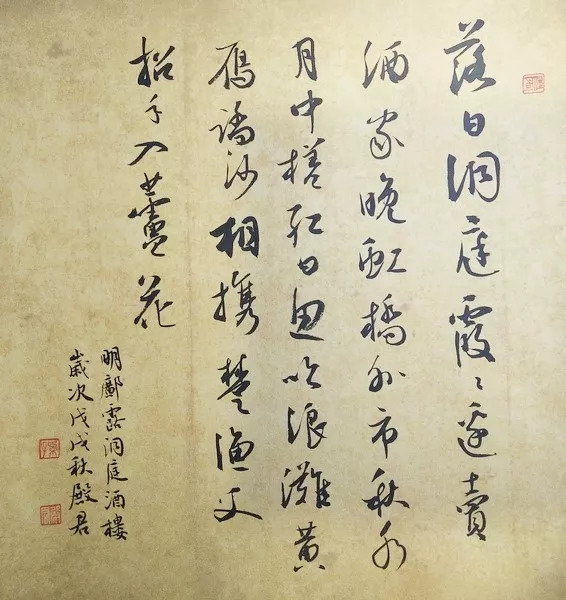 落日洞庭霞〻邊賣
酒家晚虹橋外市秋水
月中槎江白魚吹浪灘黃
鴈踏沙相携楚漁父
招手入蘆花
明鄺露洞庭酒樓
歲次戊戌秋殿君